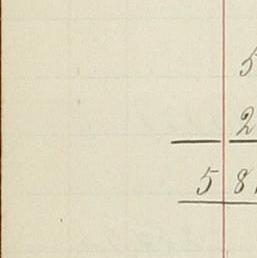 5
2
5 8